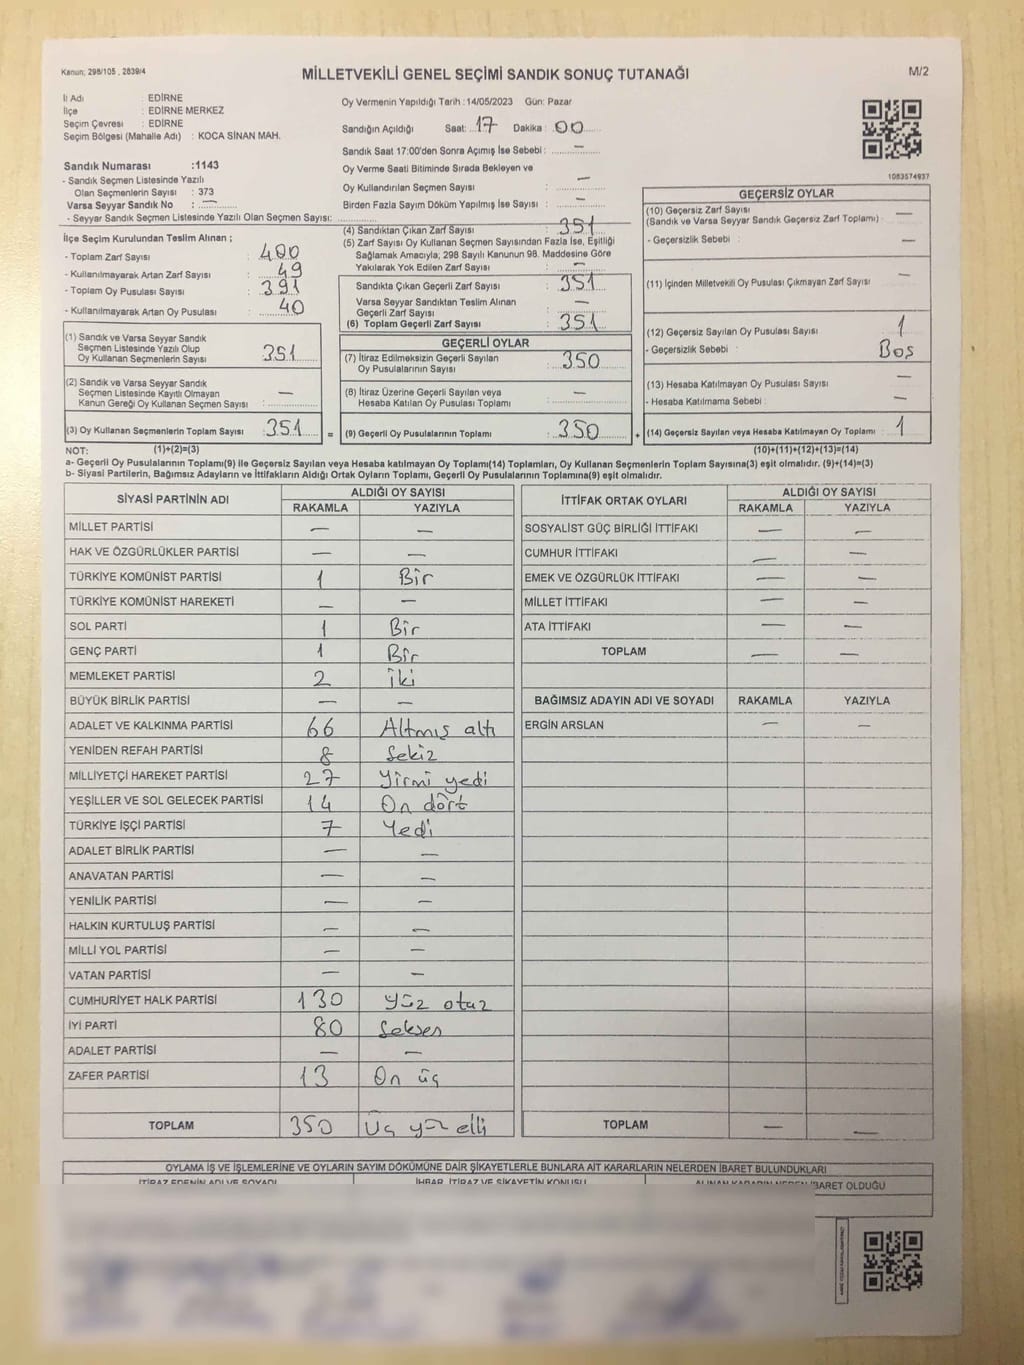 Kanun; 298/105 , 2839/4
MİLLETVEKİLİ GENEL SEÇİMİ SANDIK SONUÇ TUTANAĞI
M/2
İl Adı : EDİRNE
İlçe : EDİRNE MERKEZ
Seçim Çevresi : EDİRNE
Seçim Bölgesi (Mahalle Adı) : KOCA SİNAN MAH.
Sandık Numarası :1143
- Sandık Seçmen Listesinde Yazılı
Olan Seçmenlerin Sayısı : 373
Varsa Seyyar Sandık No : —
- Seyyar Sandık Seçmen Listesinde Yazılı Olan Seçmen Sayısı:
Oy Vermenin Yapıldığı Tarih :14/05/2023 Gün: Pazar
Sandığın Açıldığı Saat: 17 Dakika : 00
Sandık Saat 17:00'den Sonra Açımış İse Sebebi : —
Oy Verme Saati Bitiminde Sırada Bekleyen ve
Oy Kullandırılan Seçmen Sayısı : —
Birden Fazla Sayım Döküm Yapılmış İse Sayısı : —
1083574937
İlçe Seçim Kurulundan Teslim Alınan ;
- Toplam Zarf Sayısı : 400
- Kullanılmayarak Artan Zarf Sayısı : 49
- Toplam Oy Pusulası Sayısı : 391
- Kullanılmayarak Artan Oy Pusulası : 40
(1) Sandık ve Varsa Seyyar Sandık
Seçmen Listesinde Yazılı Olup
Oy Kullanan Seçmenlerin Sayısı : 351
(2) Sandık ve Varsa Seyyar Sandık
Seçmen Listesinde Kayıtlı Olmayan
Kanun Gereği Oy Kullanan Seçmen Sayısı : —
(3) Oy Kullanan Seçmenlerin Toplam Sayısı : 351 =
(4) Sandıktan Çıkan Zarf Sayısı : 351
(5) Zarf Sayısı Oy Kullanan Seçmen Sayısından Fazla İse, Eşitliği
Sağlamak Amacıyla; 298 Sayılı Kanunun 98. Maddesine Göre
Yakılarak Yok Edilen Zarf Sayısı : —
Sandıkta Çıkan Geçerli Zarf Sayısı : 351
Varsa Seyyar Sandıktan Teslim Alınan
Geçerli Zarf Sayısı : —
(6) Toplam Geçerli Zarf Sayısı : 351
GEÇERLİ OYLAR
(7) İtiraz Edilmeksizin Geçerli Sayılan
Oy Pusulalarının Sayısı : 350
(8) İtiraz Üzerine Geçerli Sayılan veya
Hesaba Katılan Oy Pusulası Toplamı : —
(9) Geçerli Oy Pusulalarının Toplamı : 350 +
GEÇERSİZ OYLAR
(10) Geçersiz Zarf Sayısı : —
(Sandık ve Varsa Seyyar Sandık Geçersiz Zarf Toplamı)
- Geçersizlik Sebebi : —
(11) İçinden Milletvekili Oy Pusulası Çıkmayan Zarf Sayısı : —
(12) Geçersiz Sayılan Oy Pusulası Sayısı : 1
- Geçersizlik Sebebi : Boş
(13) Hesaba Katılmayan Oy Pusulası Sayısı : —
- Hesaba Katılmama Sebebi : —
(14) Geçersiz Sayılan veya Hesaba Katılmayan Oy Toplamı : 1
NOT: (1)+(2)=(3) (10)+(11)+(12)+(13)=(14)
a- Geçerli Oy Pusulalarının Toplamı(9) ile Geçersiz Sayılan veya Hesaba katılmayan Oy Toplamı(14) Toplamları, Oy Kullanan Seçmenlerin Toplam Sayısına(3) eşit olmalıdır. (9)+(14)=(3)
b- Siyasi Partilerin, Bağımsız Adayların ve İttifakların Aldığı Ortak Oyların Toplamı, Geçerli Oy Pusulalarının Toplamına(9) eşit olmalıdır.
SİYASİ PARTİNİN ADI ALDIĞI OY SAYISI
RAKAMLA YAZIYLA
MİLLET PARTİSİ — —
HAK VE ÖZGÜRLÜKLER PARTİSİ — —
TÜRKİYE KOMÜNİST PARTİSİ 1 Bir
TÜRKİYE KOMÜNİST HAREKETİ — —
SOL PARTİ 1 Bir
GENÇ PARTİ 1 Bir
MEMLEKET PARTİSİ 2 iki
BÜYÜK BİRLİK PARTİSİ — —
ADALET VE KALKINMA PARTİSİ 66 Altmış altı
YENİDEN REFAH PARTİSİ 8 Sekiz
MİLLİYETÇİ HAREKET PARTİSİ 27 Yirmi yedi
YEŞİLLER VE SOL GELECEK PARTİSİ 14 On dört
TÜRKİYE İŞÇİ PARTİSİ 7 Yedi
ADALET BİRLİK PARTİSİ — —
ANAVATAN PARTİSİ — —
YENİLİK PARTİSİ — —
HALKIN KURTULUŞ PARTİSİ — —
MİLLİ YOL PARTİSİ — —
VATAN PARTİSİ — —
CUMHURİYET HALK PARTİSİ 130 Yüz otuz
İYİ PARTİ 80 Seksen
ADALET PARTİSİ — —
ZAFER PARTİSİ 13 On üç
TOPLAM 350 Üç yüz elli
İTTİFAK ORTAK OYLARI ALDIĞI OY SAYISI
RAKAMLA YAZIYLA
SOSYALİST GÜÇ BİRLİĞİ İTTİFAKI — —
CUMHUR İTTİFAKI — —
EMEK VE ÖZGÜRLÜK İTTİFAKI — —
MİLLET İTTİFAKI — —
ATA İTTİFAKI — —
TOPLAM — —
BAĞIMSIZ ADAYIN ADI VE SOYADI RAKAMLA YAZIYLA
ERGİN ARSLAN — —
TOPLAM — —
OYLAMA İŞ VE İŞLEMLERİNE VE OYLARIN SAYIM DÖKÜMÜNE DAİR ŞİKAYETLERLE BUNLARA AİT KARARLARIN NELERDEN İBARET BULUNDUKLARI
İTİRAZ EDENİN ADI VE SOYADI İHBAR, İTİRAZ VE ŞİKAYETİN KONUSU ALINAN KARARIN NEDEN İBARET OLDUĞU